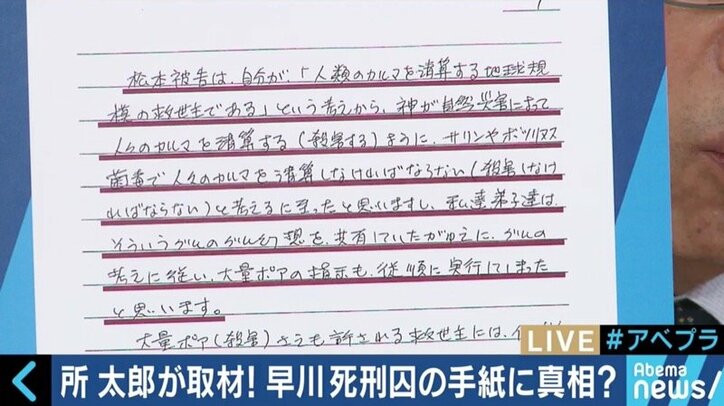 松本被告は、自分が、「人類のカルマを清算する地球規
模の救世主である」という考えから、神が自然災害によって
人々のカルマを清算する(殺害する)ように、サリンやボツリヌス
菌毒で人々のカルマを清算しなければならない(殺害しなけ
ればならない)と考えるに至ったと思いますし、私達弟子達は、
そういうグルのグル幻想を、共有していたがゆえに、グルの
考えに従い、大量ポアの指示も、従順に実行してしまった
と思います。
大量ポア(殺害)さえも許される救世主には、
LIVE #アベプラ
所 太郎が取材!早川 死刑囚の手紙に真相?
Abema
news/